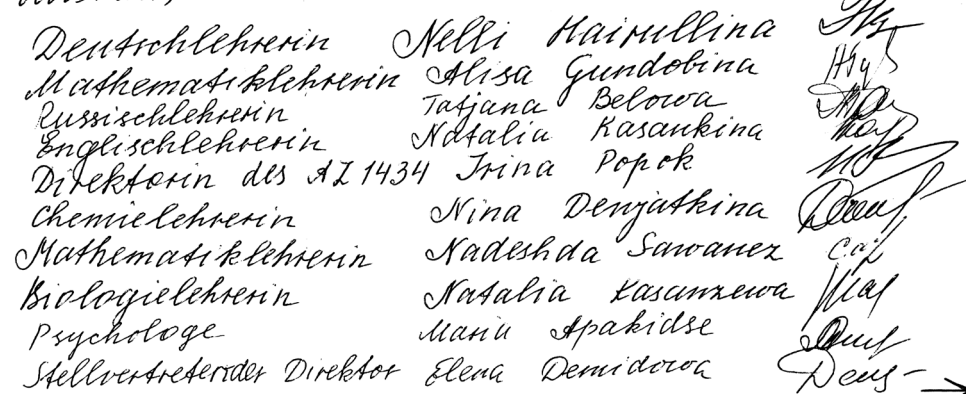 Deutschlehrerin Nelli Hairullina
Mathematiklehrerin Alisa Gundobina
Russischlehrerin Tatjana Belowa
Englischlehrerin Natalia Kasankina
Direktorin des AZ 1434 Irina Popok
Chemielehrerin Nina Denjatkina
Mathematiklehrerin Nadeshda Sawanez
Biologielehrerin Natalia Kasanzewa
Psychologe Maria Apakidse
Stellvertretender Direktor Elena Demidowa